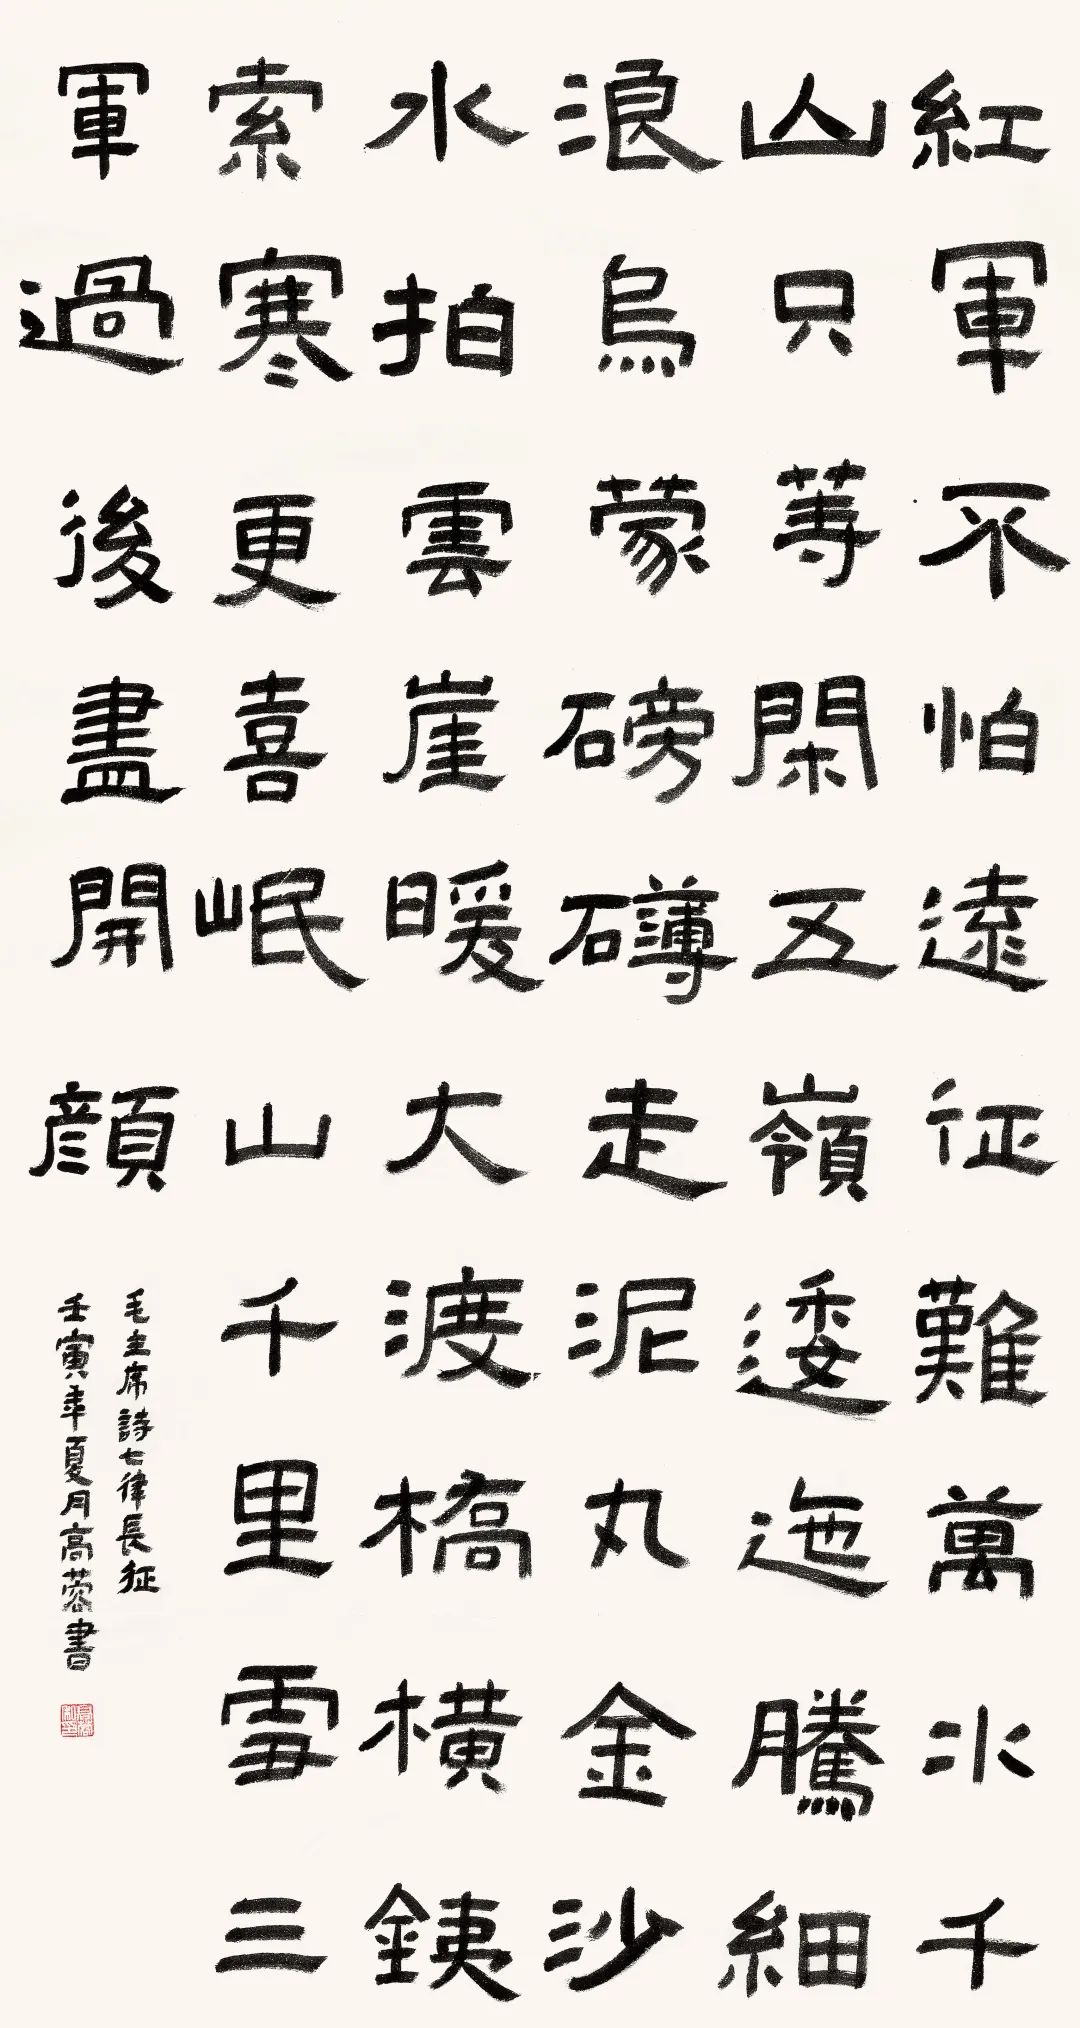 紅軍不怕遠征難萬水千
山只等閑五嶺逶迤騰細
浪烏蒙磅礴走泥丸金沙
水拍雲崖暖大渡橋橫銕
索寒更喜岷山千里雪三
軍過後盡開顏
毛主席詩七律長征
壬寅年夏月高蓉書